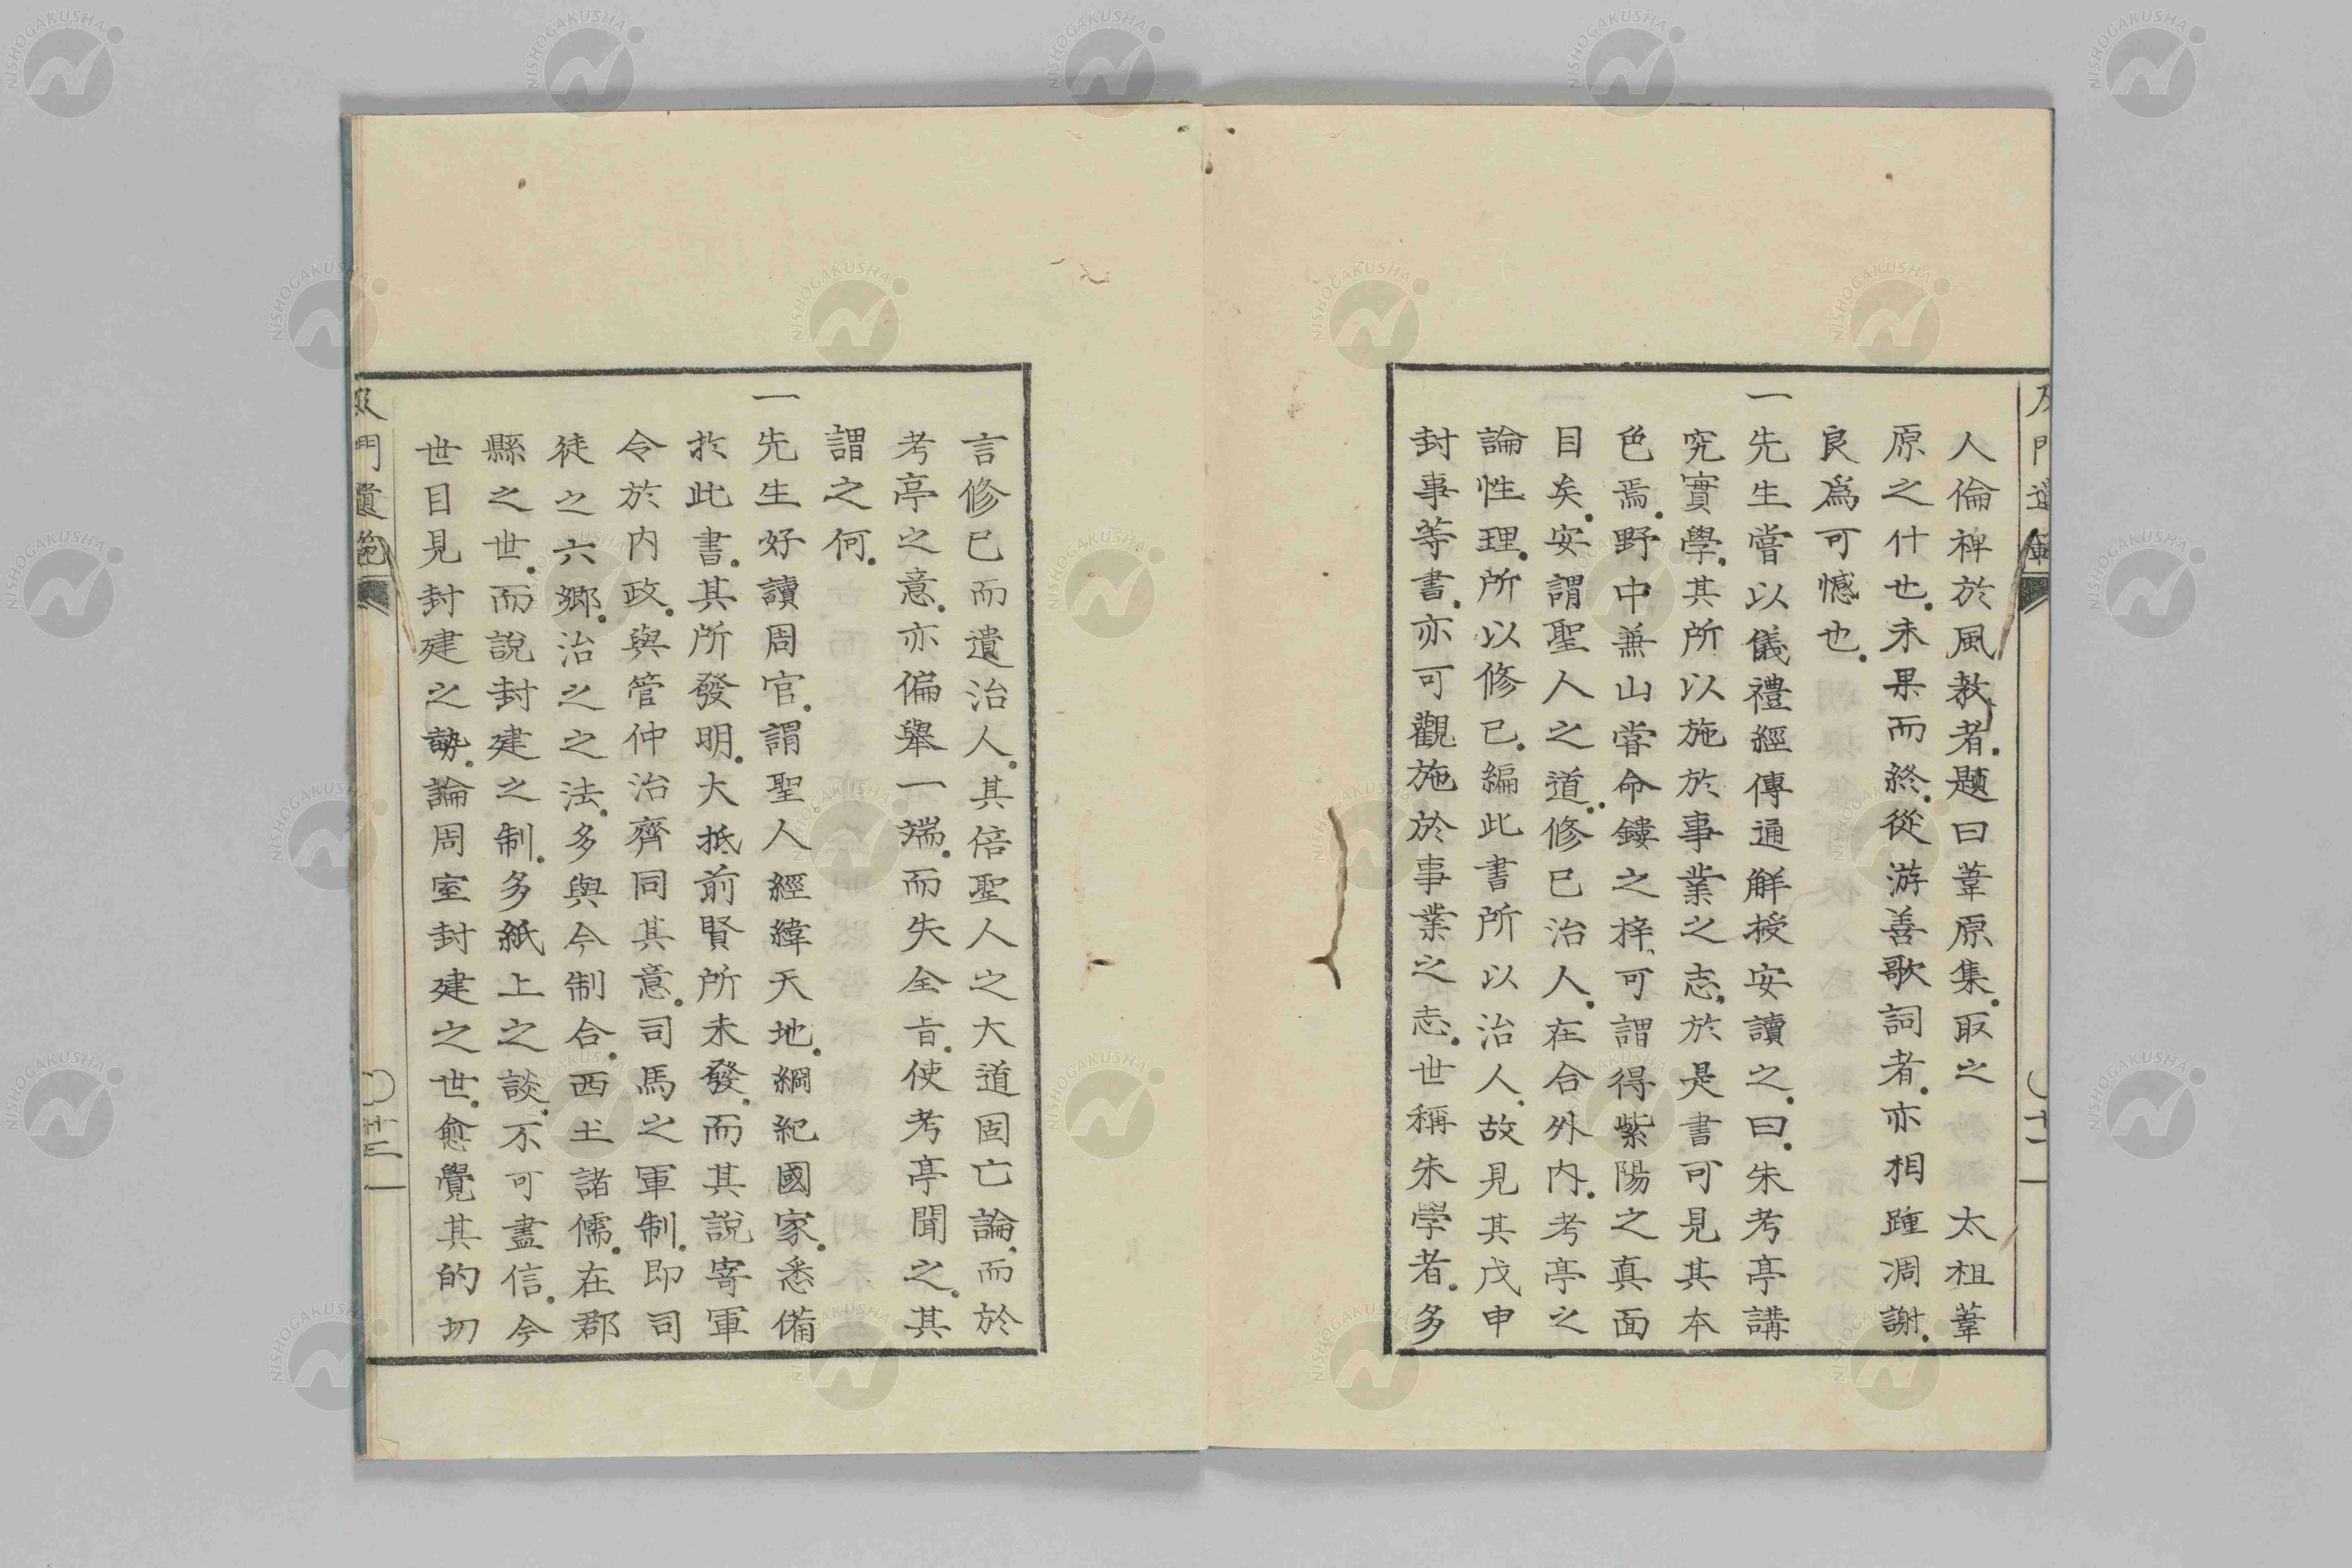 人倫裨於風教者。題曰葦原集。取之　太祖葦
原之什也。未果而終。從游善歌詞者。亦相踵凋謝。
良爲可憾也。
一先生嘗以儀禮經傳通解授安讀之。曰。朱考亭講
究實學。其所以施於事業之志。於是書可見其本
色焉。野中兼山嘗命鏤之梓。可謂得紫陽之真面
目矣。安謂聖人之道。修已治人。在合外内。考亭之
論性理。所以修已。編此書所以治人。故見其戊申
封事等書。亦可觀施於事業之志。世稱朱學者。多
言修已而遺治人。其倍聖人之大道固亡論。而於
考亭之意。亦偏舉一端。而失全旨。使考亭聞之。其
謂之何。
一先生好讀周官。謂聖人經緯天地。綱紀國家。悉備
扵此書。其所發明。大抵前賢所未發。而其說寄軍
令於内政。與管仲治齊同其意。司馬之軍制。即司
徒之六鄉。治之之法。多與今制合。西土諸儒。在郡
縣之世。而說封建之制。多紙上之談。不可盡信。今
世目見封建之勢。論周室封建之世。愈覺其的切
及門遺範
十二
NISHOGAKUSHA